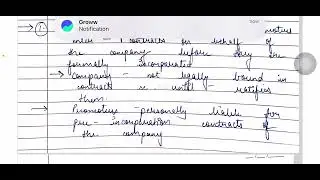 → 1.
Groww
Notification
now
enter contracts for behalf of
the company before they are
formally incorporated
→ Company - not legally bound in
contract until - ratifies
them.
→ Promoters - personally liable for
pre - incorporation contracts of
the company